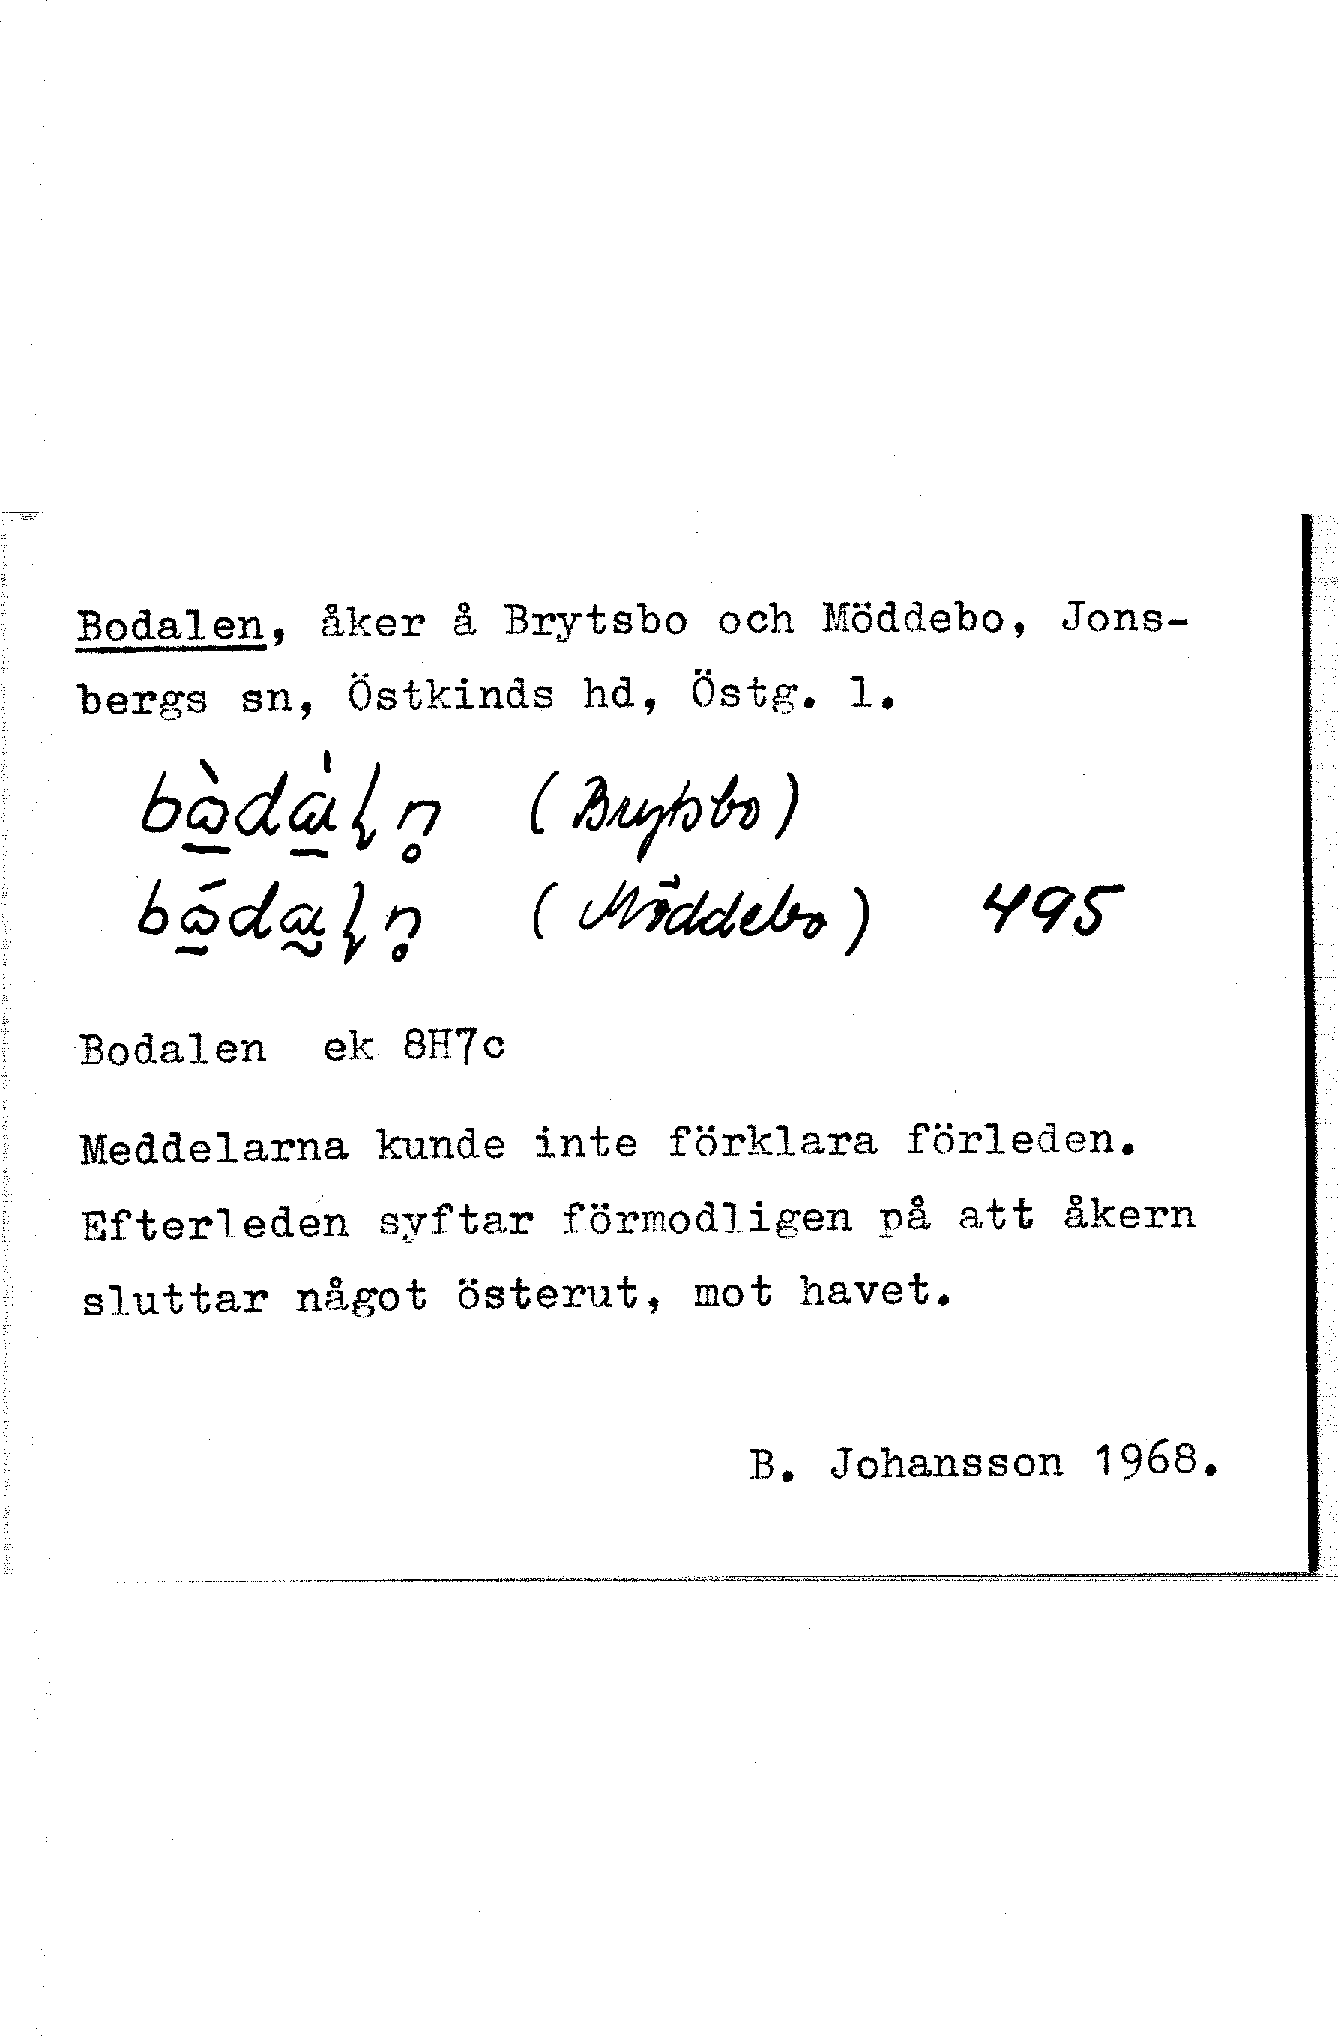 Bodalen, åker å Brytsbo och Möddebo, Jons-
bergs sn, Östkinds hd, Östg. l.
(Brytsbo)
(Möddebo) 495
Bodalen ek 8H7c
Meddelarna kunde inte förklara förleden.
Efterleden syftar förmodligen på att åkern
sluttar något österut, mot havet.
B. Johansson 1968.